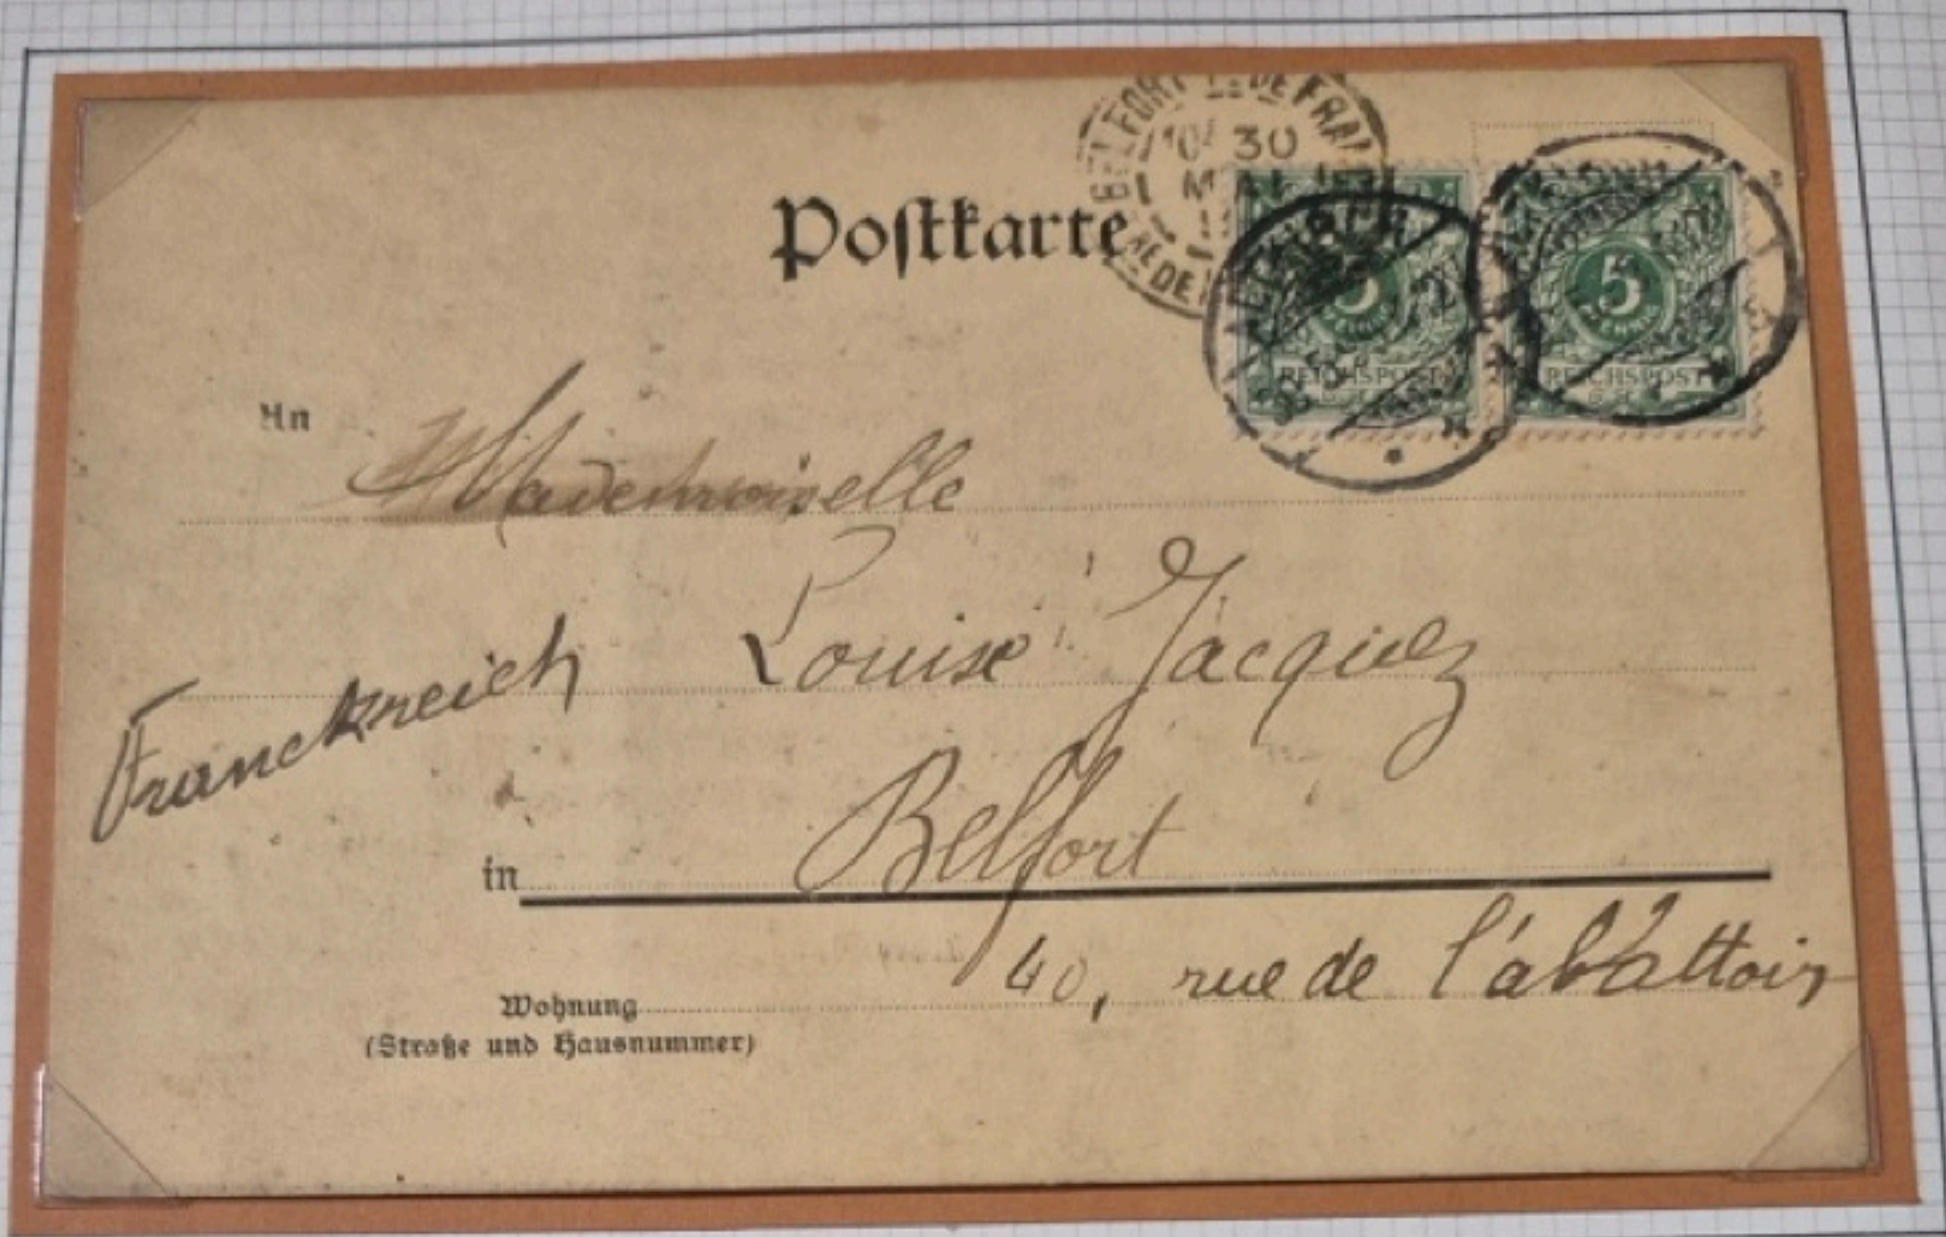 Postkarte
BELFORT
10 30
MAI
5
REICHSPOST
5
REICHSPOST
An
Mademoiselle
Louise Jacquez
Franckreich
in Belfort
40, rue de l'abattoir
Wohnung
(Straße und Hausnummer)